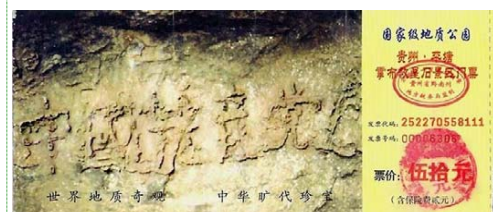 國產党
世界地质奇观 中华旷代珍宝
国家级地质公园
贵州·平塘
掌布 景区门票
贵州省黔南州
发票代码：252270558111
发票号码：00006306
票价：伍拾元
（含保险费贰元）